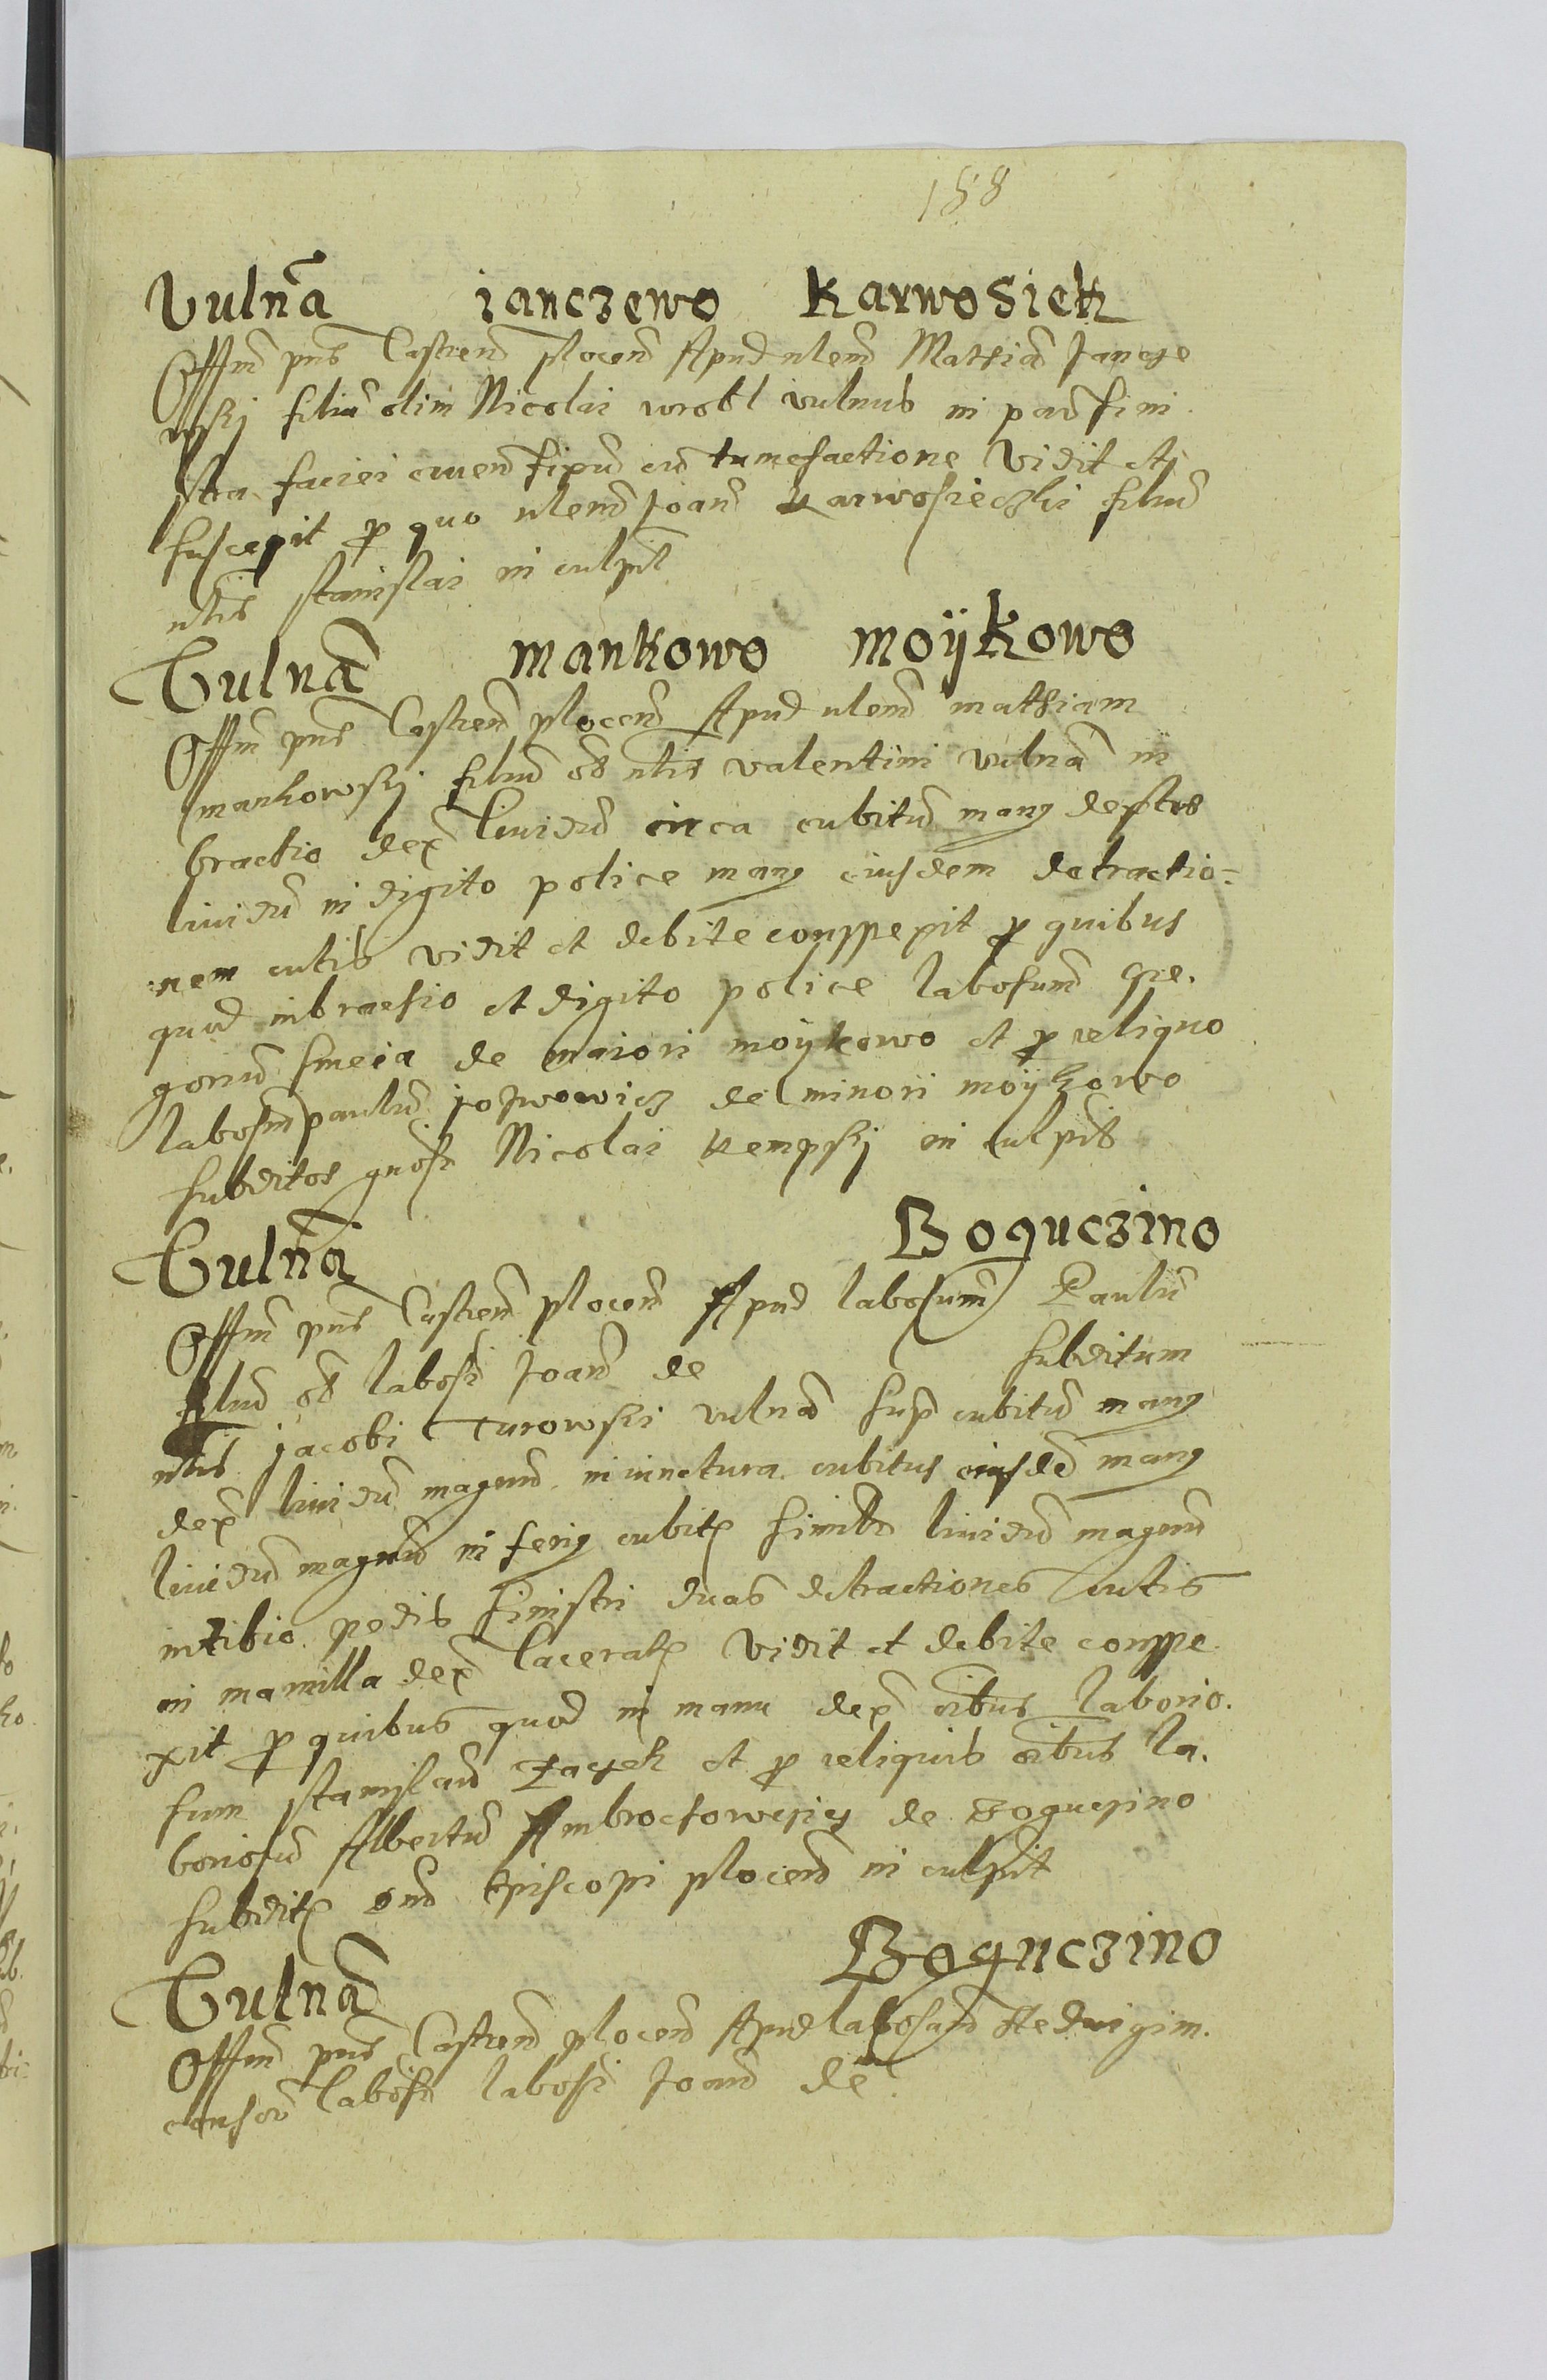 158
Vulnā ianczewo Karwosiek
Offm pns Castren plocen Apud nlem Mathiā Jancze
wskj filiū olim Nicolai wrobl vulnus in par sini
stra faciei cruen cū tumefactione vidit et
suscepit p quo nlem Joan Karwosieczki filiū
nlis stanislai in culpat
Vulnā mankowo moÿkowo
Offm pns Castren plocen Apud nlem mathiam
mankowskj filiū ol nlis valentini vulnā in
brachio dex liuidū circa cubitū man dextre
liuidū in digito police man eiusdem detractio=
nem cutis vidit et debite conspexit p quibus
quod in brachio et digito police labosum Gre.
goriū smeia de maiori moÿkowo et p reliquo
labosum paulū de minori moÿkowo
subditos gnosi Nicolai Kempskj in culpat
Vulnā Boguczino
Offm pns Castren plocen Apud labosum Paulū
filiū ol labosi Joan de subditum
nlis jacobi Turowski vulnā sup cubitū man
dex liuidū magnū in iunctura cubitus eiusdē man
liuidū magnū inferi cubit sinistr liuidū magnū
in tibio pedis sinistri duas detractiones cutis
in mamilla dex lacerat vidit et debite conspe
xit p quibus quod in manu dex oibus laborio.
sum stanislaū et p reliquis oibus la.
boriosū Albertū de Boguczino
subdit Episcopi plocen in culpat
Vulnā Boguczino
Offm pns Castren plocen Apud labosam Hedwigim.
consor labosi labosi Joan de